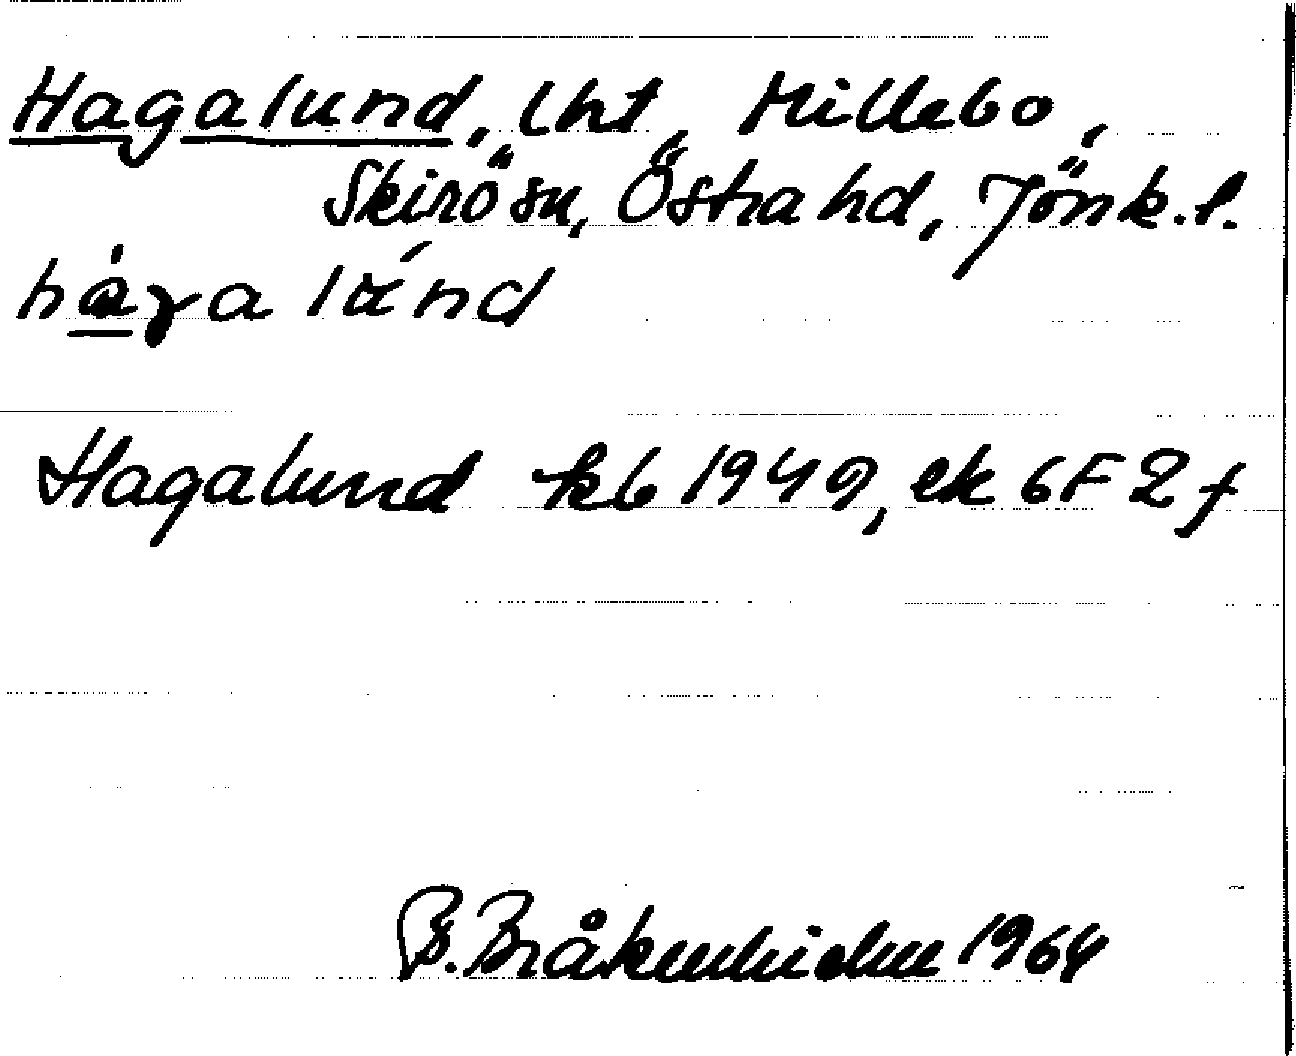 Hagalund, lht, Hillebo,
Skirö sn, Östra hd, Jönk.l.
hàɣa lánd
Hagalund kb 1949, ek 6F2f
B. Bråkenhielm 1964